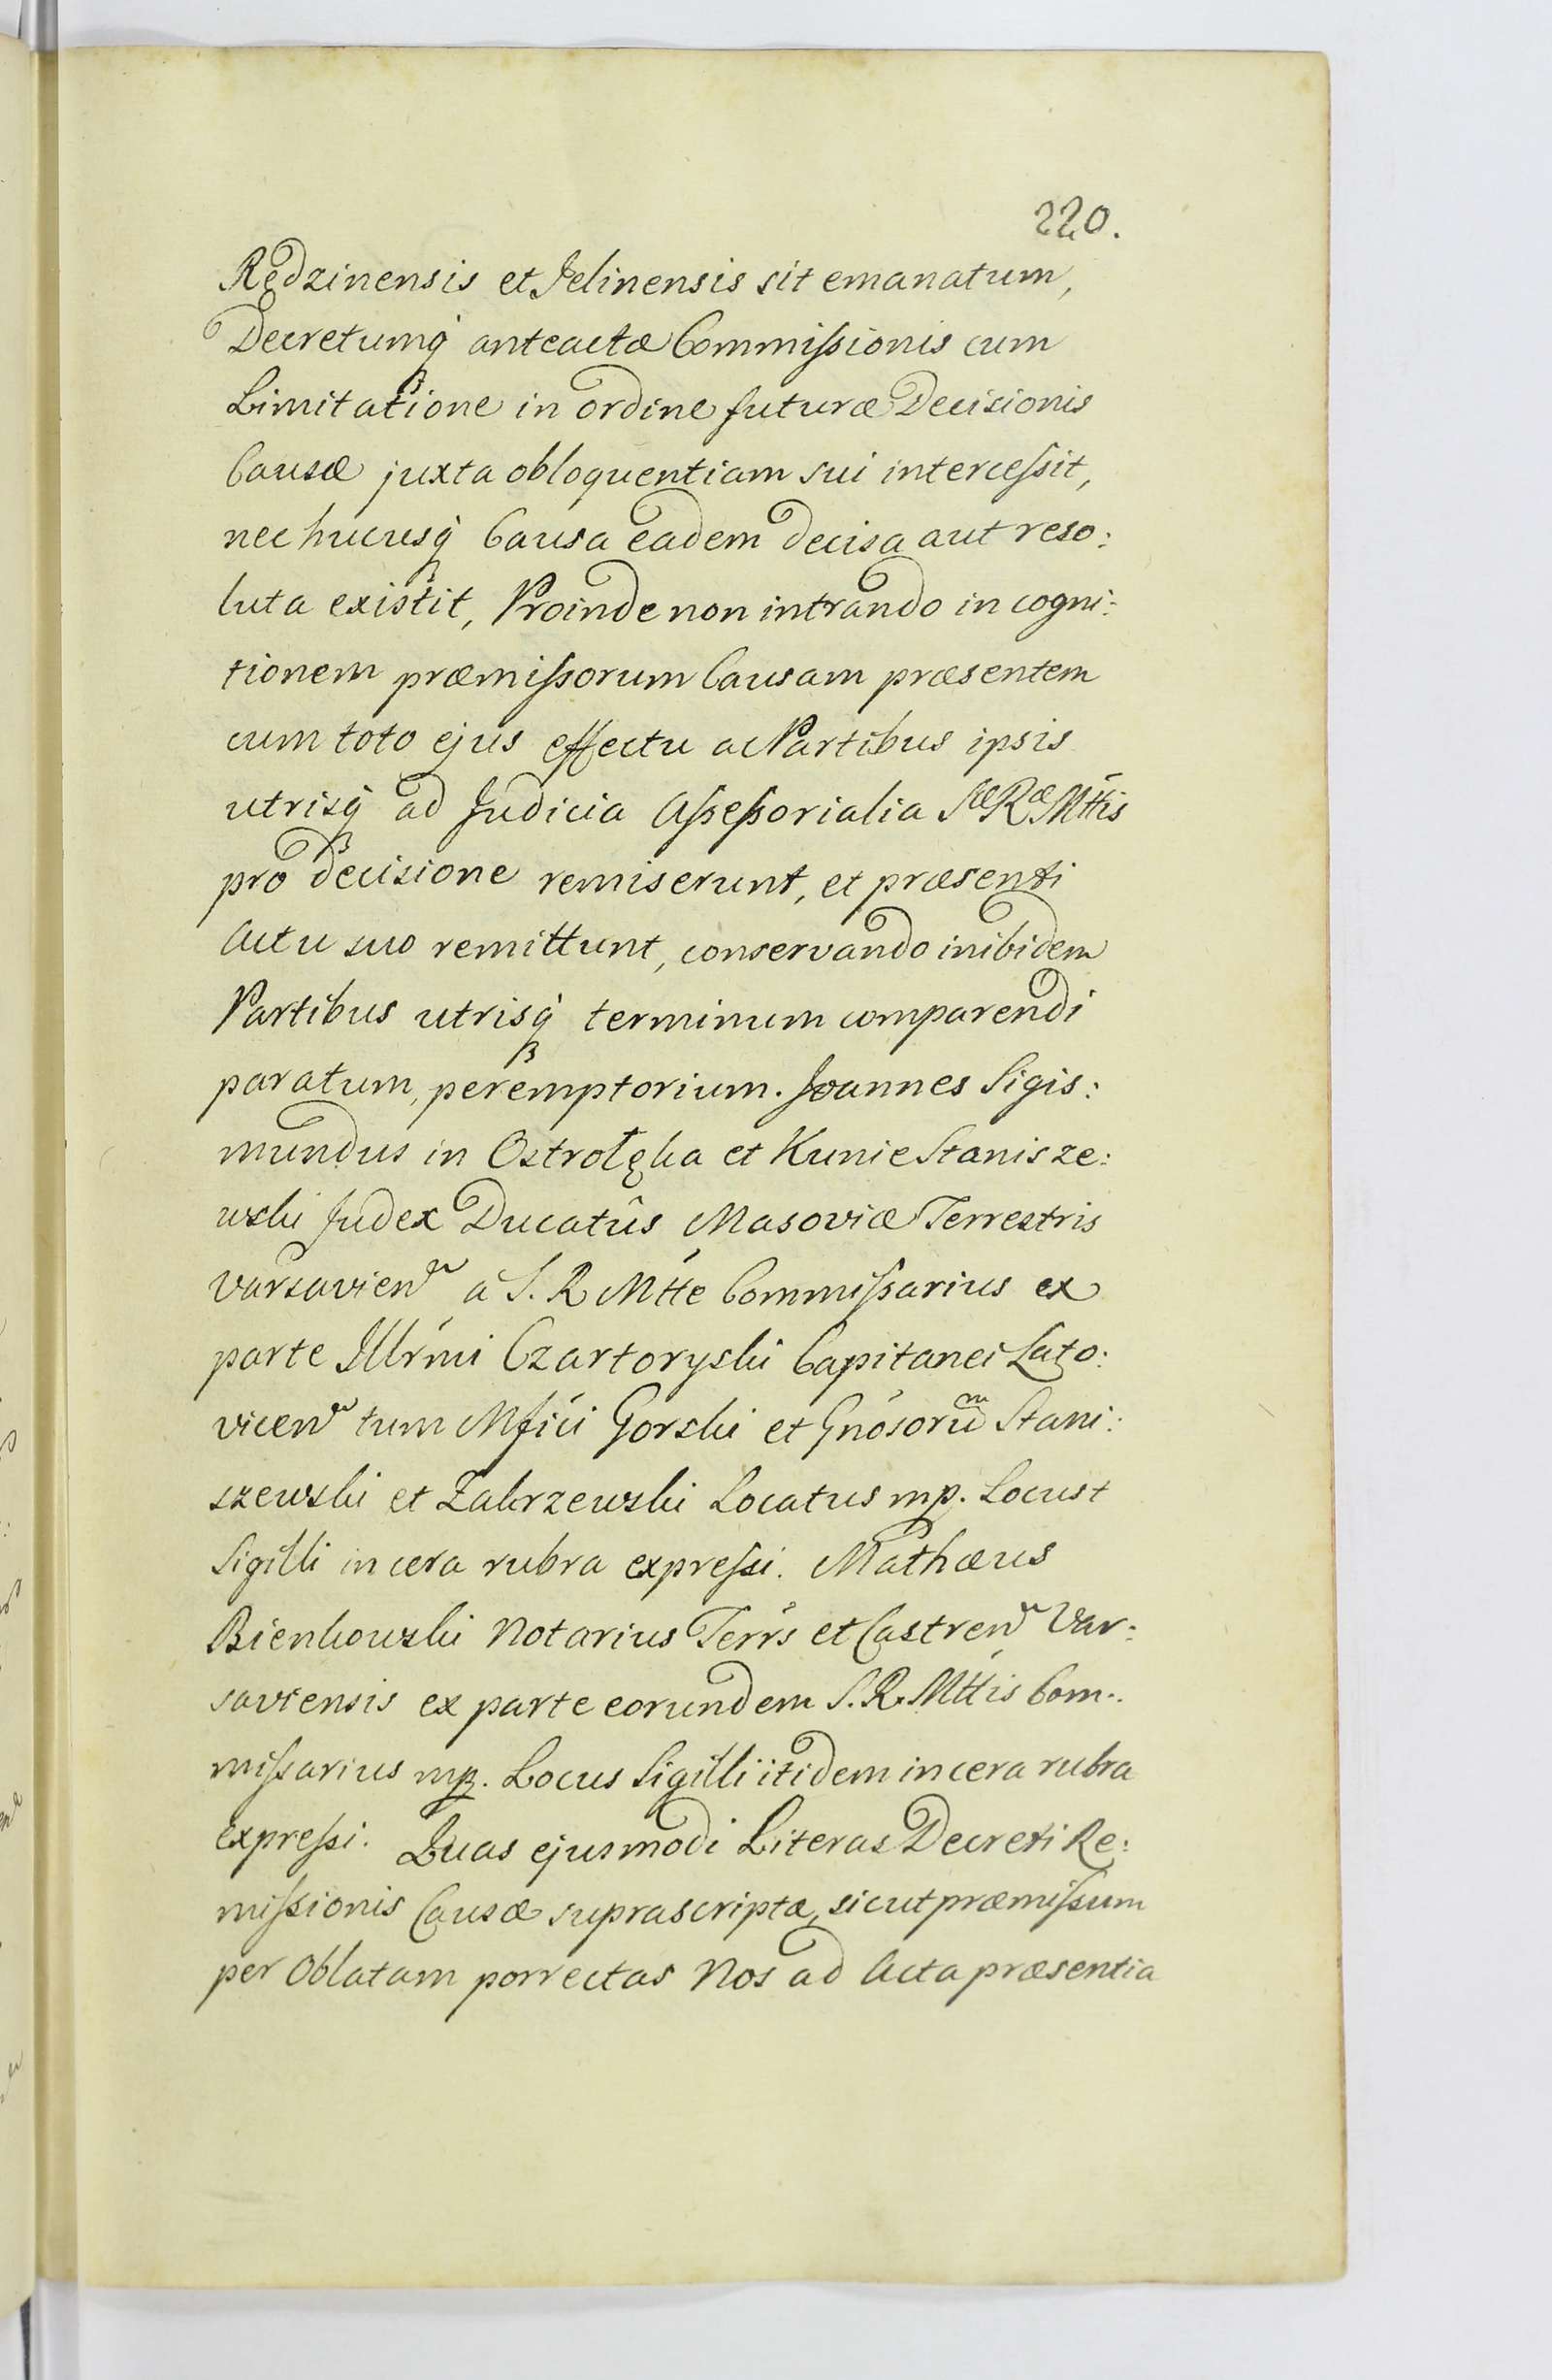 220.
Rędzinensis et Jelinensis sit emanatum,
Decretumq́ anteactæ Commissionis cum
Limitatione in ordine futuræ Decisionis
Causæ juxta obloquentiam sui intercessit,
nec hucusq́ Causa eadem decisa aut reso:
luta existit, Proinde non intrando in cogni:
tionem præmissorum Causam præsentem
cum toto ejus effectu ac Partibus ipsis
utrisq́ ad Judicia Assessorialia Sæ Ræ Mttis
pro decisione remiserunt, et præsenti
Actu suo remittunt, conservando inibidem
Partibus utrisq́ terminum comparendi
paratum, peremptorium. Joannes Sigis:
mundus in Ostrołęka et Kunie Stanisze:
wski Judex Ducatûs Masoviæ Terrestris
Varsavien a S. R Mtte Commissarius ex
parte Illrmi Czartoryski Capitanei Łato:
vicen tum Mfici Gorski et Gnosorum Stani:
szewski et Zakrzewski Locatus mp. Locus
Sigilli in cera rubra expressi. Mathæus
Bienkowski Notarius Terrs et Castren Var:
saviensis ex parte eorundem S. R. Mttis Com:
missarius mp. Locus Sigilli itidem in cera rubra
expressi. Quas ejusmodi Literas Decreti Re:
missionis Causæ suprascriptæ, sicut præmissum
per Oblatam porrectas Nos ad Acta præsentia